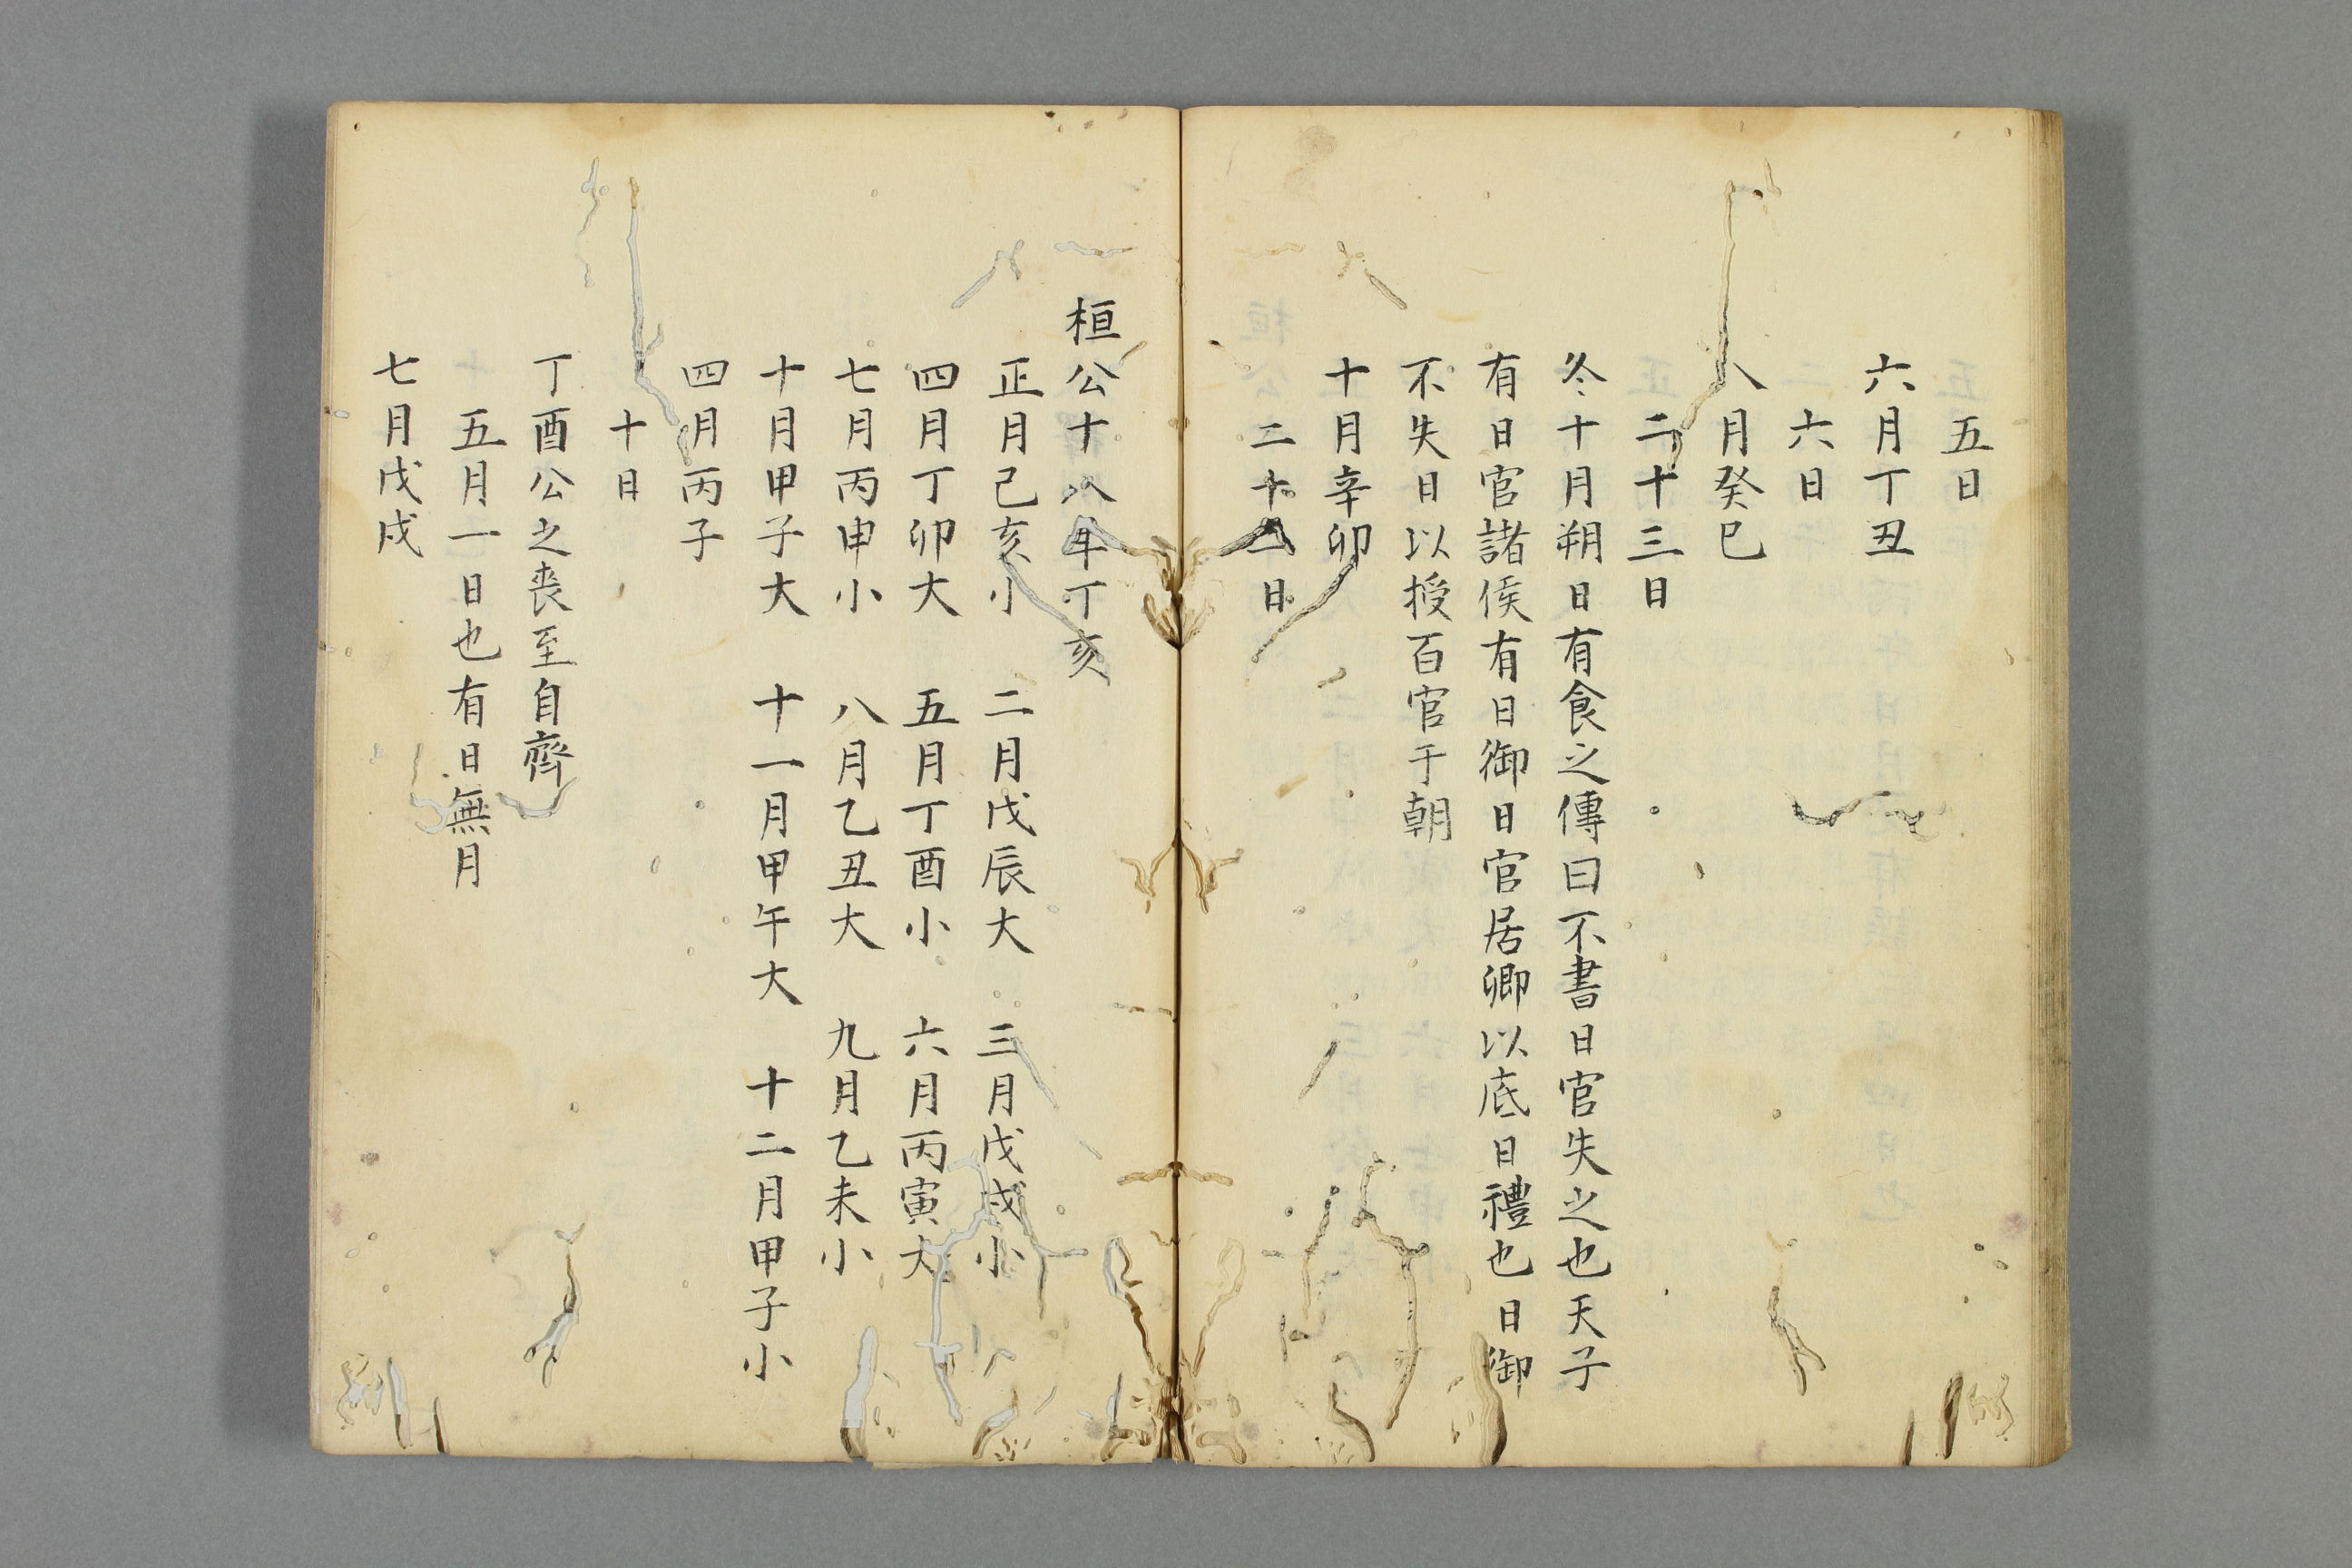 五日
六月丁丑
六日
八月癸巳
二十三日
冬十月朔日有食之傳曰不書日官失之也天子
有日官諸侯有日御日官居卿以底日禮也日御
不失日以授百官于朝
十月辛卯
二十日
桓公十八年丁亥
正月己亥小 二月戊辰大 三月戊戌小
四月丁卯大 五月丁酉小 六月丙寅大
七月丙申小 八月乙丑大 九月乙未小
十月甲子大 十一月甲午大 十二月甲子小
四月丙子
十日
丁酉公之喪至自齊
五月一日也有日無月
七月戊戌